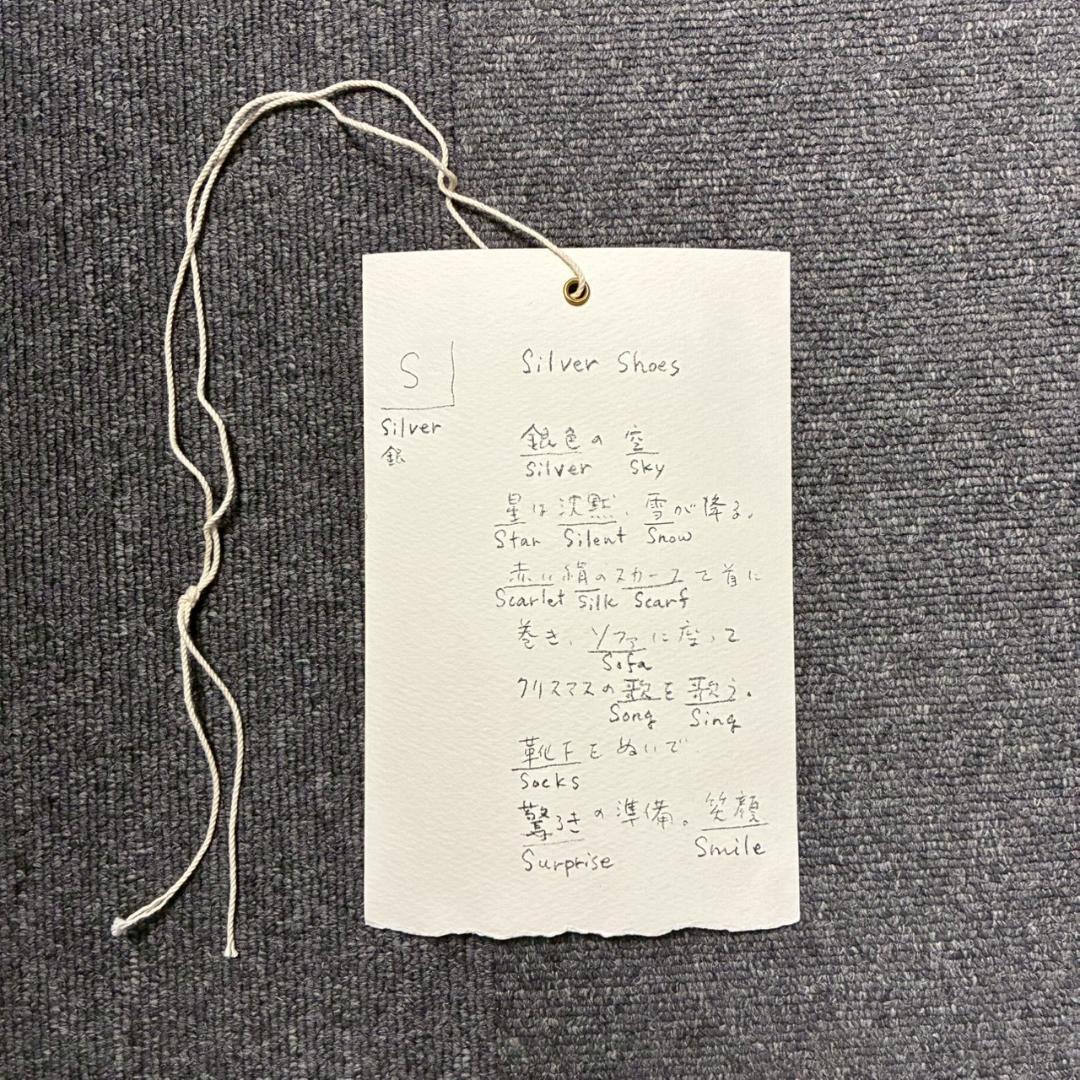 S
Silver
銀
Silver Shoes
銀色の空
Silver Sky
星は沈黙、雪が降る。
Star Silent Snow
赤い絹のスカーフを首に
Scarlet Silk Scarf
巻き、ソファに座って
Sofa
クリスマスの歌を歌う。
Song Sing
靴下をぬいで
Socks
驚きの準備。笑顔
Surprise Smile